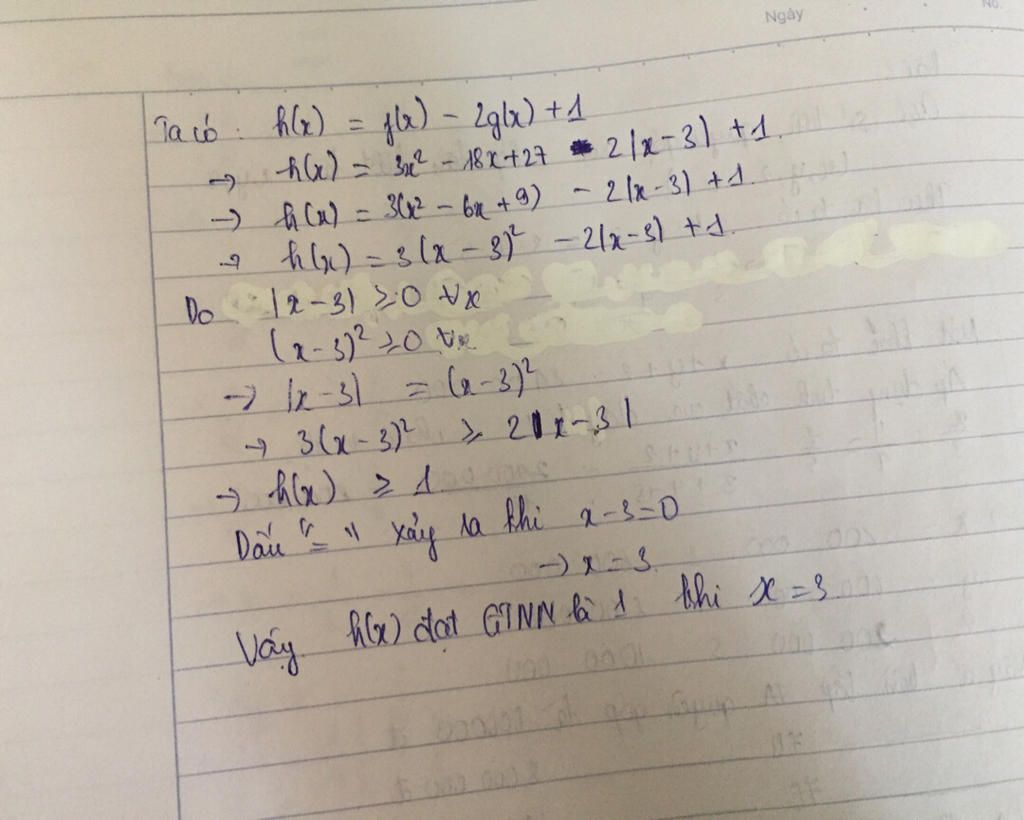 Ngày
No.
Ta có : h(x) = f(x) - 2g(x) + 1
→ h(x) = 3x² - 18x + 27 - 2|x - 3| + 1.
→ h(x) = 3(x² - 6x + 9) - 2|x - 3| + 1.
→ h(x) = 3(x - 3)² - 2|x - 3| + 1.
Do |x - 3| ≥ 0 ∀x
(x - 3)² ≥ 0 ∀x
→ |x - 3| = (x - 3)²
→ 3(x - 3)² ≥ 2|x - 3|
→ h(x) ≥ 1.
Dấu "=" xảy ra khi x - 3 = 0
→ x = 3.
Vậy h(x) đạt GTNN là 1 khi x = 3